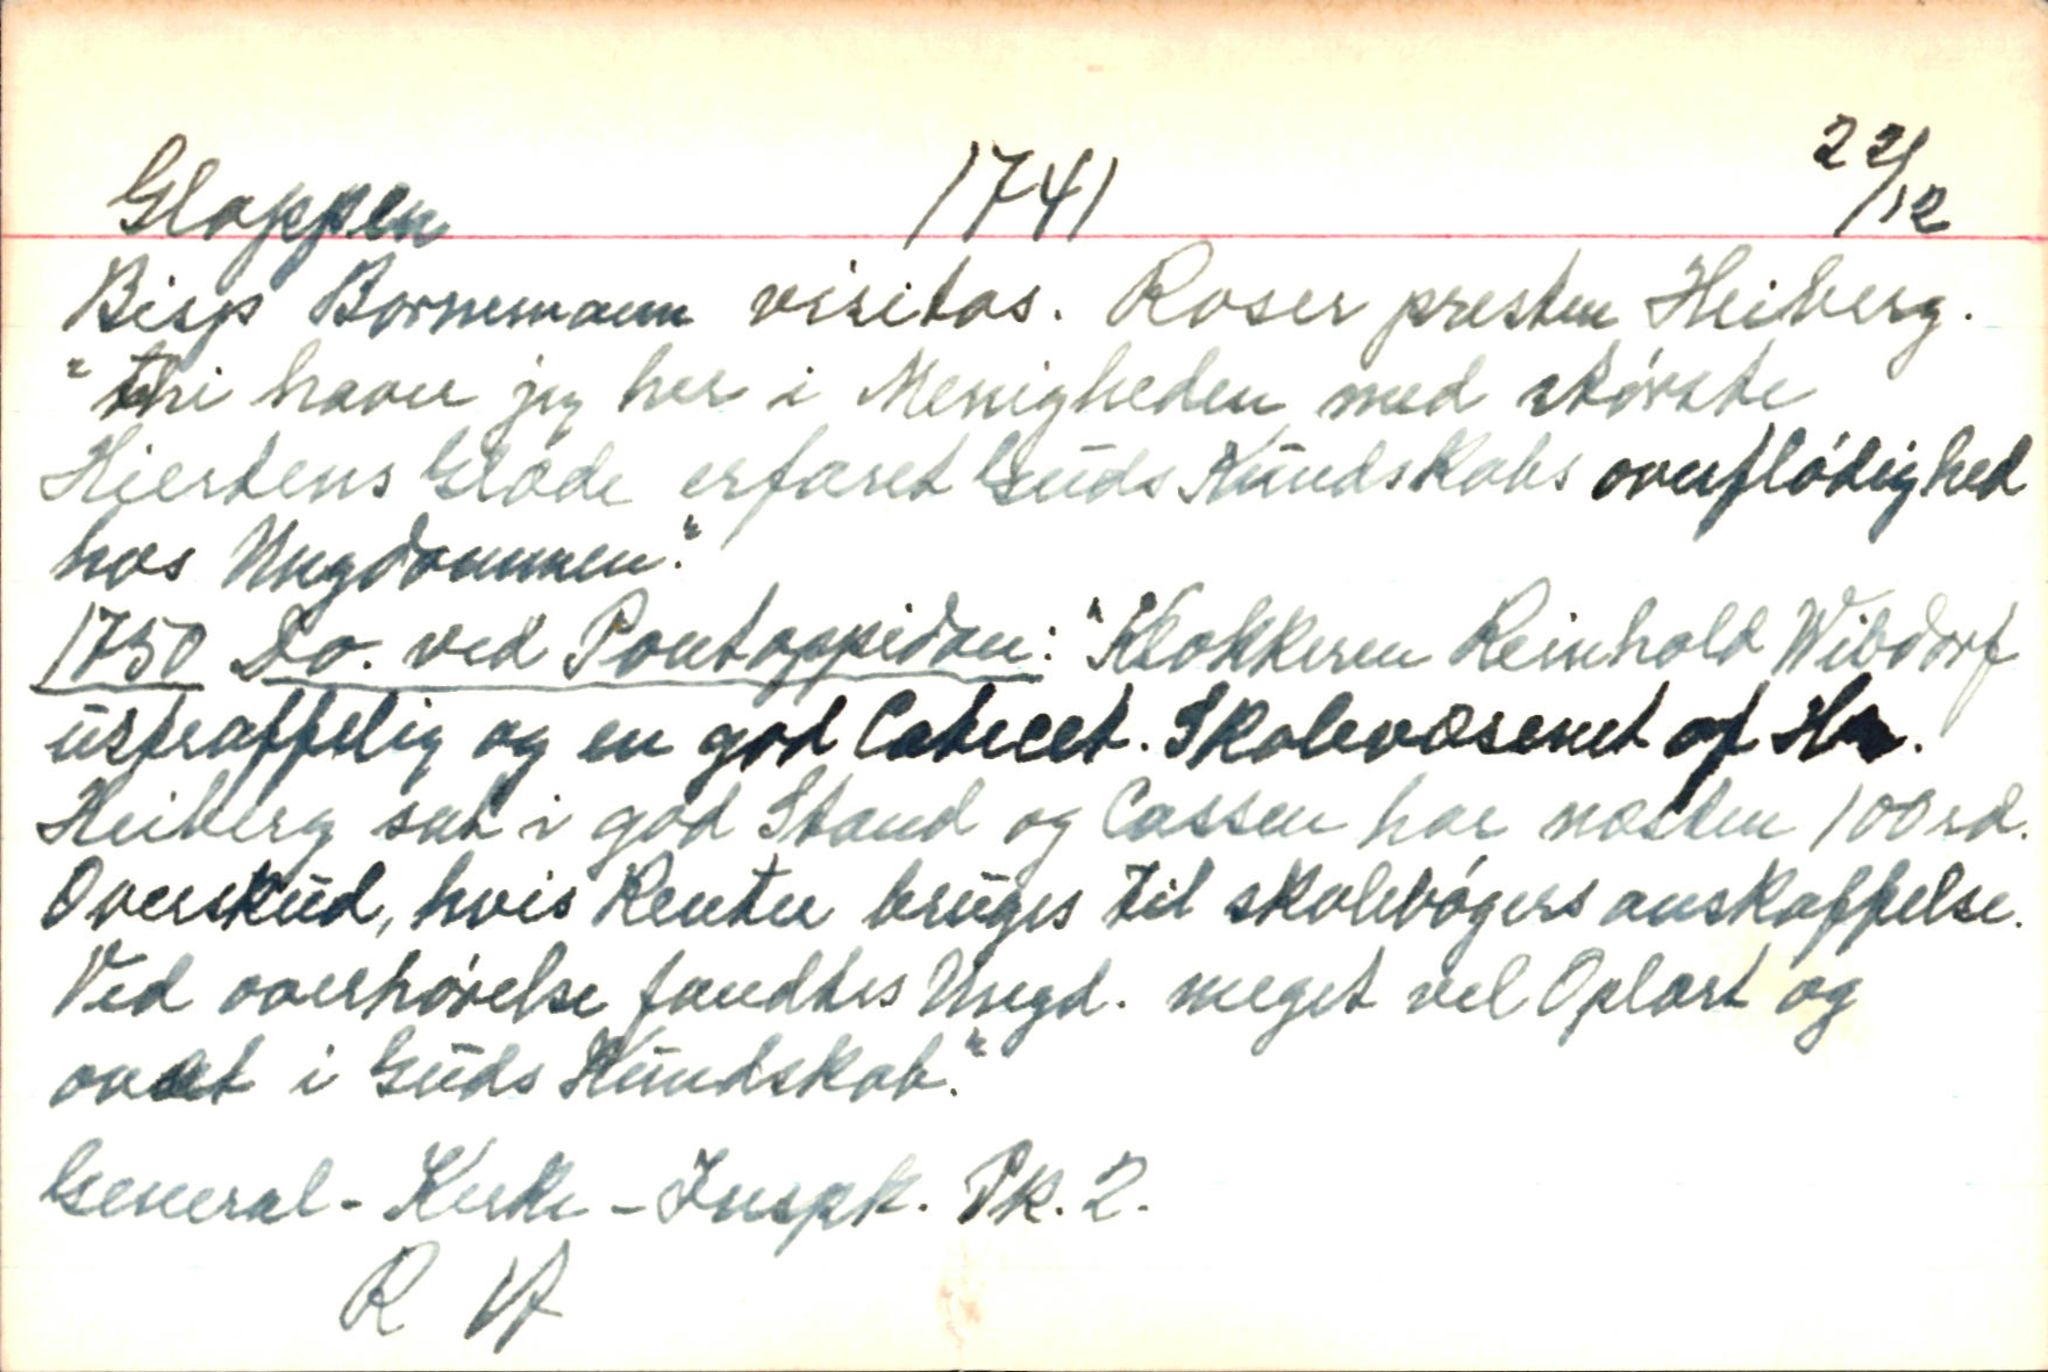 Gloppen 1741 22/12
Bisp Bornemann visitas. Roser presten Heiberg.
"thi haver jeg her i Menigheden med största
Hiertens Glæde erfaret Gūds Kūndskabs overflödighed
hos Ungdommen."
1750 Do. ved Pontoppidan: "Klokkeren Reinhold Wibdorf
ūstraffelig og en god Catecet. Skolevæsenet af Hr.
Heiberg sat i god Stand og Cassen har næsten 100 rd.
Overskūd, hvis Renter brūges til skolebögers anskaffelse.
Ved overhörelse fandtes Ungd. meget vel Oplært og
ovet i Gūds Kūndskab."
General-Kirke-Inspk. Pk. 2.
R A